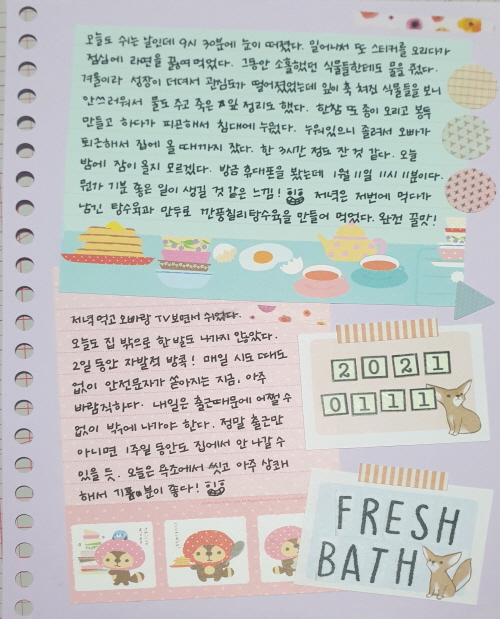 오늘도 쉬는 날인데 9시 30분에 눈이 떠졌다. 일어나서 또 스티커를 오리다가
점심에 라면을 끓여 먹었다. 그동안 소홀했던 식물들한테도 물을 줬다.
겨울이라 성장이 더뎌서 관심도가 떨어졌었는데 잎이 축 쳐진 식물들을 보니
안쓰러워서 물도 주고 죽은 잎 정리도 했다. 한참 또 종이 오리고 봉투
만들고 하다가 피곤해서 침대에 누웠다. 누워있으니 졸려서 오빠가
퇴근해서 집에 올 때까지 잤다. 한 3시간 정도 잔 것 같다. 오늘
밤에 잠이 올지 모르겠다. 방금 휴대폰을 봤는데 1월 11일 11시 11분이다.
뭔가 기분 좋은 일이 생길 것 같은 느낌! 저녁은 저번에 먹다가
남긴 탕수육과 만두로 깐풍칠리탕수육을 만들어 먹었다. 완전 꿀맛!
저녁 먹고 오빠랑 TV보면서 쉬었다.
오늘도 집 밖으로 한 발도 나가지 않았다.
2일 동안 자발적 방콕! 매일 시도 때도
없이 안전문자가 쏟아지는 지금, 아주
바람직하다. 내일은 출근때문에 어쩔 수
없이 밖에 나가야 한다. 정말 출근만
아니면 1주일 동안도 집에서 안 나갈 수
있을 듯. 오늘은 욕조에서 씻고 아주 상쾌
해서 기분이 좋다!
2021
0111
FRESH
BATH